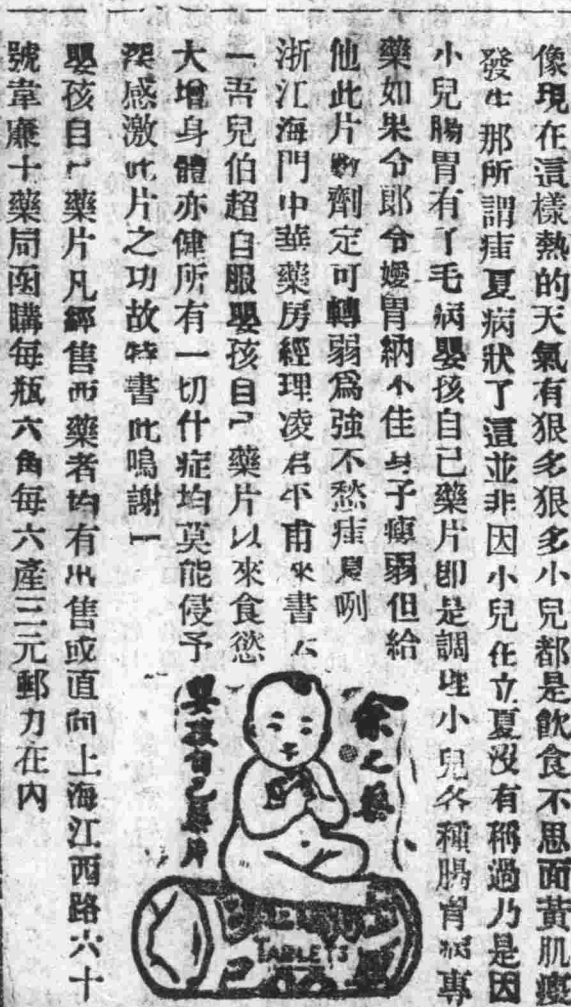 像現在這樣熱的天氣有狠多狠多小兒都是飲食不思面黃肌瘦
發生那所謂疰夏病狀了這並非因小兒在立夏沒有稱過乃是因
小兒腸胃有了毛病嬰孩自己藥片即是調理小兒各種腸胃病專
藥如果令郎令嬡胃納不佳身子瘦弱但給
他此片數劑定可轉弱爲強不愁疰夏咧
浙江海門中華藥房經理凌君平甫來書云
一吾兒伯超自服嬰孩自己藥片以來食慾
大增身體亦健所有一切什症均莫能侵予
深感激此片之功故特書此鳴謝一
嬰孩自己藥片凡經售西藥者均有出售或直向上海江西路六十
號韋廉士藥局函購每瓶六角每六產三元郵力在內
余之藥
嬰孩自己藥片
TABLETS